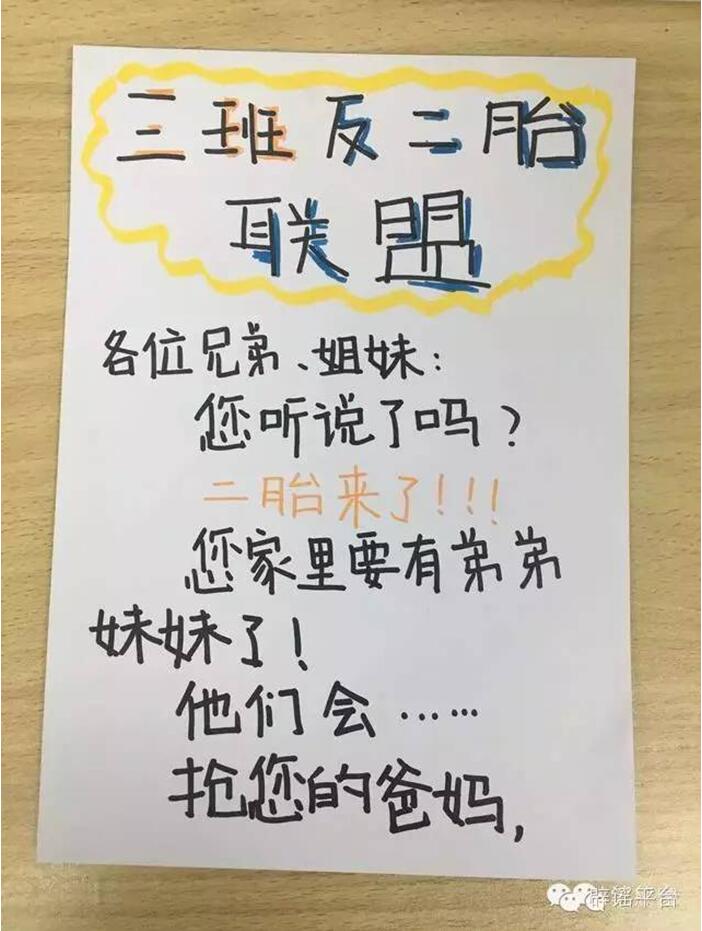 三班反二胎
联盟
各位兄弟、姐妹:
您听说了吗?
二胎来了!!!
您家里要有弟弟
妹妹了!
他们会……
抢您的爸妈,
辟谣平台